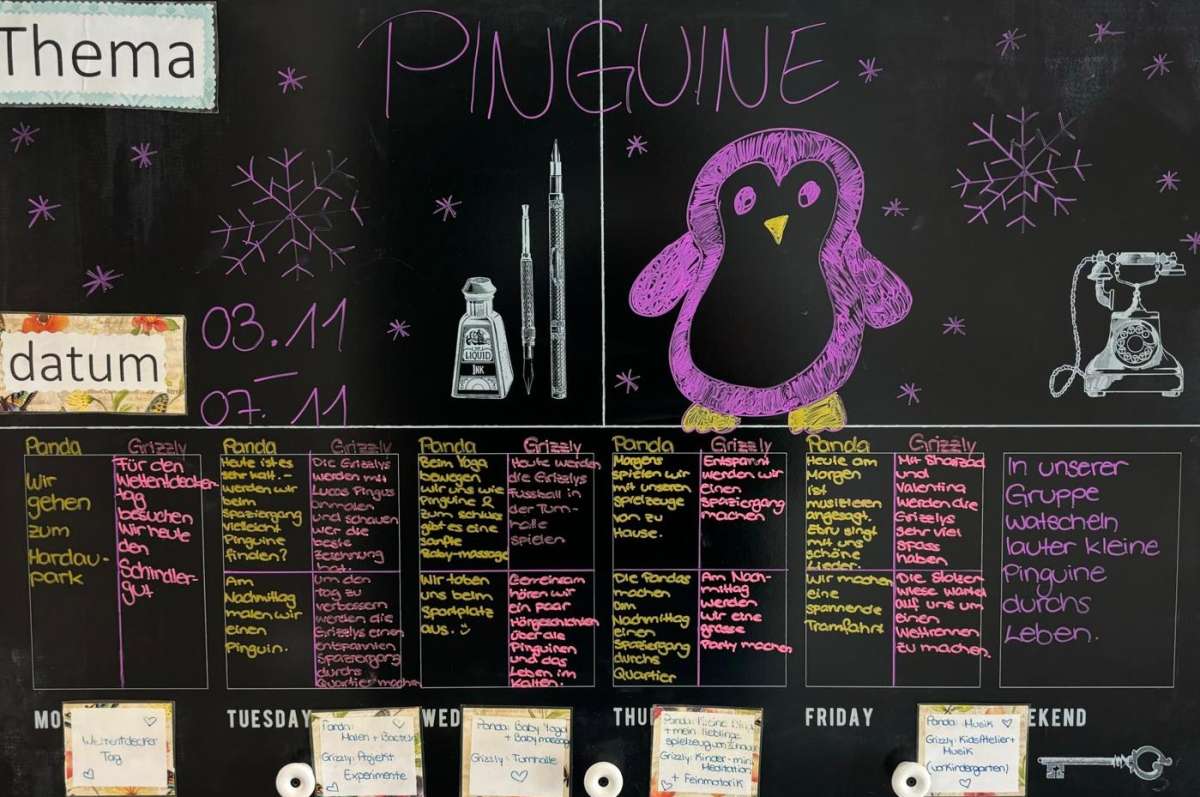 Thema
PINGUINE
datum
03.11
–
07.11
LIQUID
INK
Panda
Wir
gehen
zum
Hardau-
park
Grizzly
Für den
Weltentdecker-
tag
besuchen
Wir heute
den
Schindler-
gut
Panda
Heute ist es
sehr kalt. -
werden wir
beim
spaziergang
vielleicht
Pinguine
finden?
Am
Nachmittag
malen wir
einen
Pinguin.
Grizzly
Die Grizzlys
werden mit
Lucas Pingus
anmalen
und schauen
wer die
beste
Zeichnung
hat.
um den
Tag zu
verbessern
werden die
Grizzlys einen
entspannten
Spaziergang
durchs
Quartier machen
Panda
Beim Yoga
bewegen
wir uns wie
Pinguine &
zum schluss
gibt es eine
sanfte
Baby-massage
Wir toben
uns beim
Sportplatz
aus.
Grizzly
Heute werden
die Grizzlys
Fussball in
der Turn-
halle
spielen
Gemeinsam
hören wir
ein paar
Hörgeschichten
über die
Pinguinen
und das
Leben im
Kalten.
Panda
Morgens
spielen wir
mit unseren
spielzeuge
von zu
Hause.
Die Pandas
machen
am
Nachmittag
einen
Spaziergang
durchs
Quartier
Grizzly
Entspannt
werden wir
einen
spaziergang
machen
Am Nach-
mittag
werden
wir eine
grosse
Party machen
Panda
Heute am
Morgen
ist
musizieren
angesagt.
Ebru singt
mit uns
schöne
Lieder.
Wir machen
eine
spannende
Tramfahrt
Grizzly
Mit Sharzad
und
Valentina
werden die
Grizzlys
sehr viel
spass
haben
Die Stolzen-
wiese wartet
auf uns um
einen
Wettrennen
zu machen.
In unserer
Gruppe
watscheln
lauter kleine
Pinguine
durchs
Leben.
MO
TUESDAY
WED
THU
FRIDAY
EKEND
Weltentdecker
Tag
Panda:
Malen + Basteln
Grizzly: Projekt
Experimente
Panda: Baby Yoga
+ Babymassage
Grizzly: Turnhalle
Panda: Kleine
+ mein lieblings
spielzeug von Zuhause
Grizzly: Kinder-
Meditation
+ Feinmotorik
Panda: Musik
Grizzly: KidsAtelier +
Musik
(vorkindergarten)